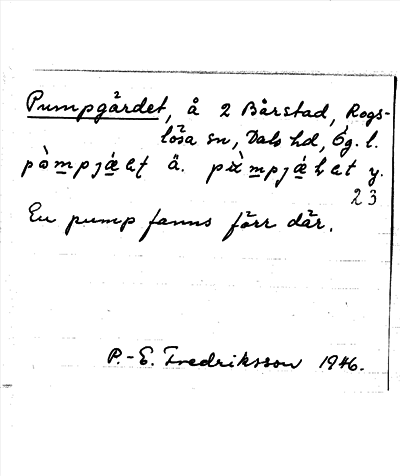 Pumpgärdet, å 2 Bårstad, Rogs-
lösa sn, Dals hd, Ög. l.
ä. y.
23
En pump fanns förr där.
P.-E. Fredriksson 1946.